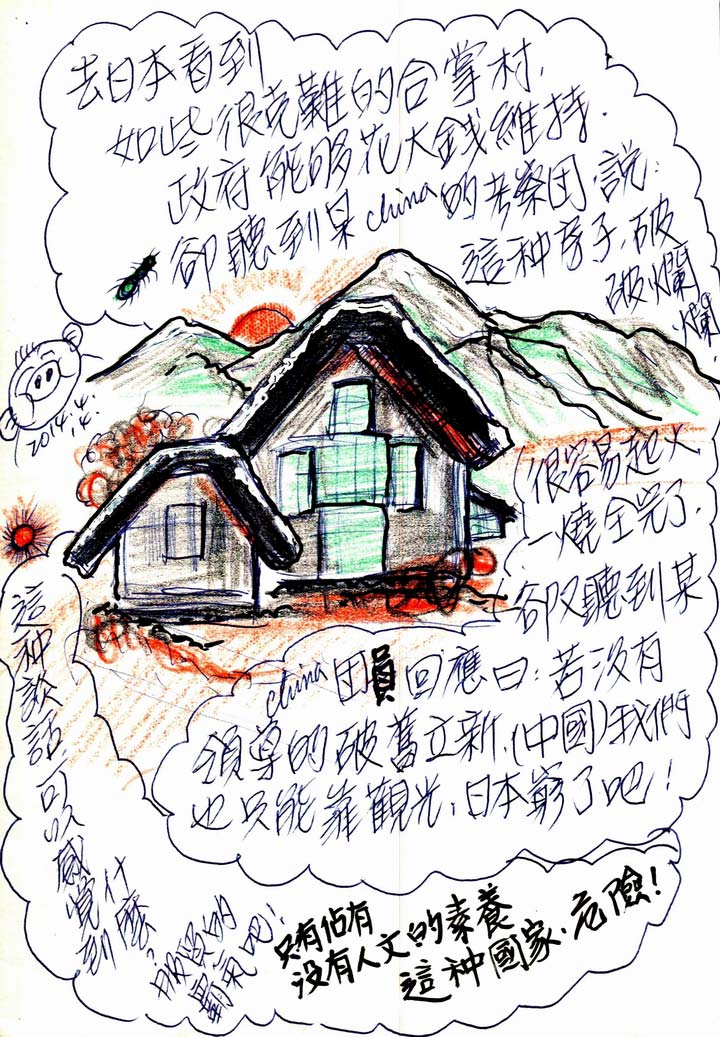 去日本看到
如些很克難的合掌村，
政府能够花大錢維持．
卻聽到某china的考察团．說：
這种房子．破
破．爛
爛
很容易起火
一燒全完了．
卻又聽到某
china团員回應曰：若沒有
領導的破舊立新．(中國)我們
也只能靠觀光，日本窮了吧！
這种談話可以感覺到
什麼？
的
勇氣吧！
只有佔有
没有人文的素養
這种國家．危險！
2014.4.
14.